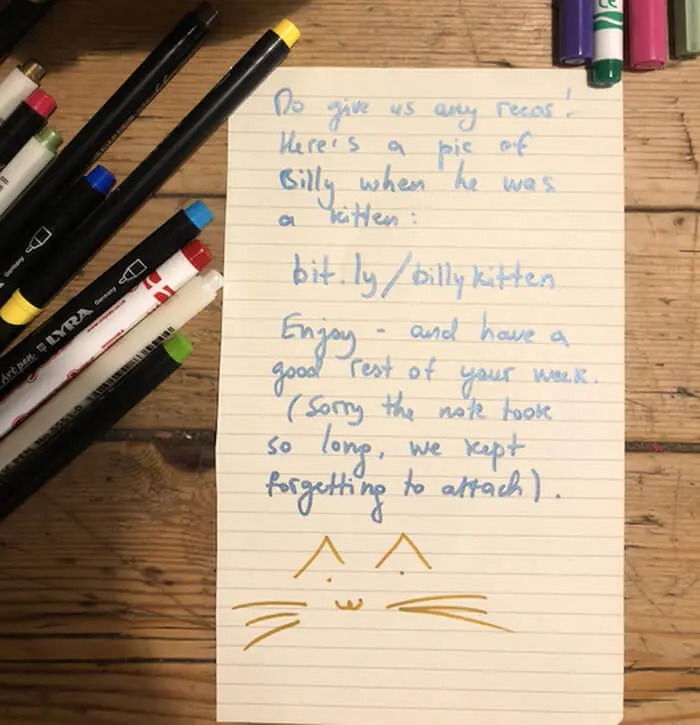 Do give us any recos!
Here's a pic of
Billy when he was
a kitten:
bit.ly/billykitten
Enjoy - and have a
good rest of your week.
(Sorry the note took
so long, we kept
forgetting to attach).
Germany
Art pen LYRA Germany